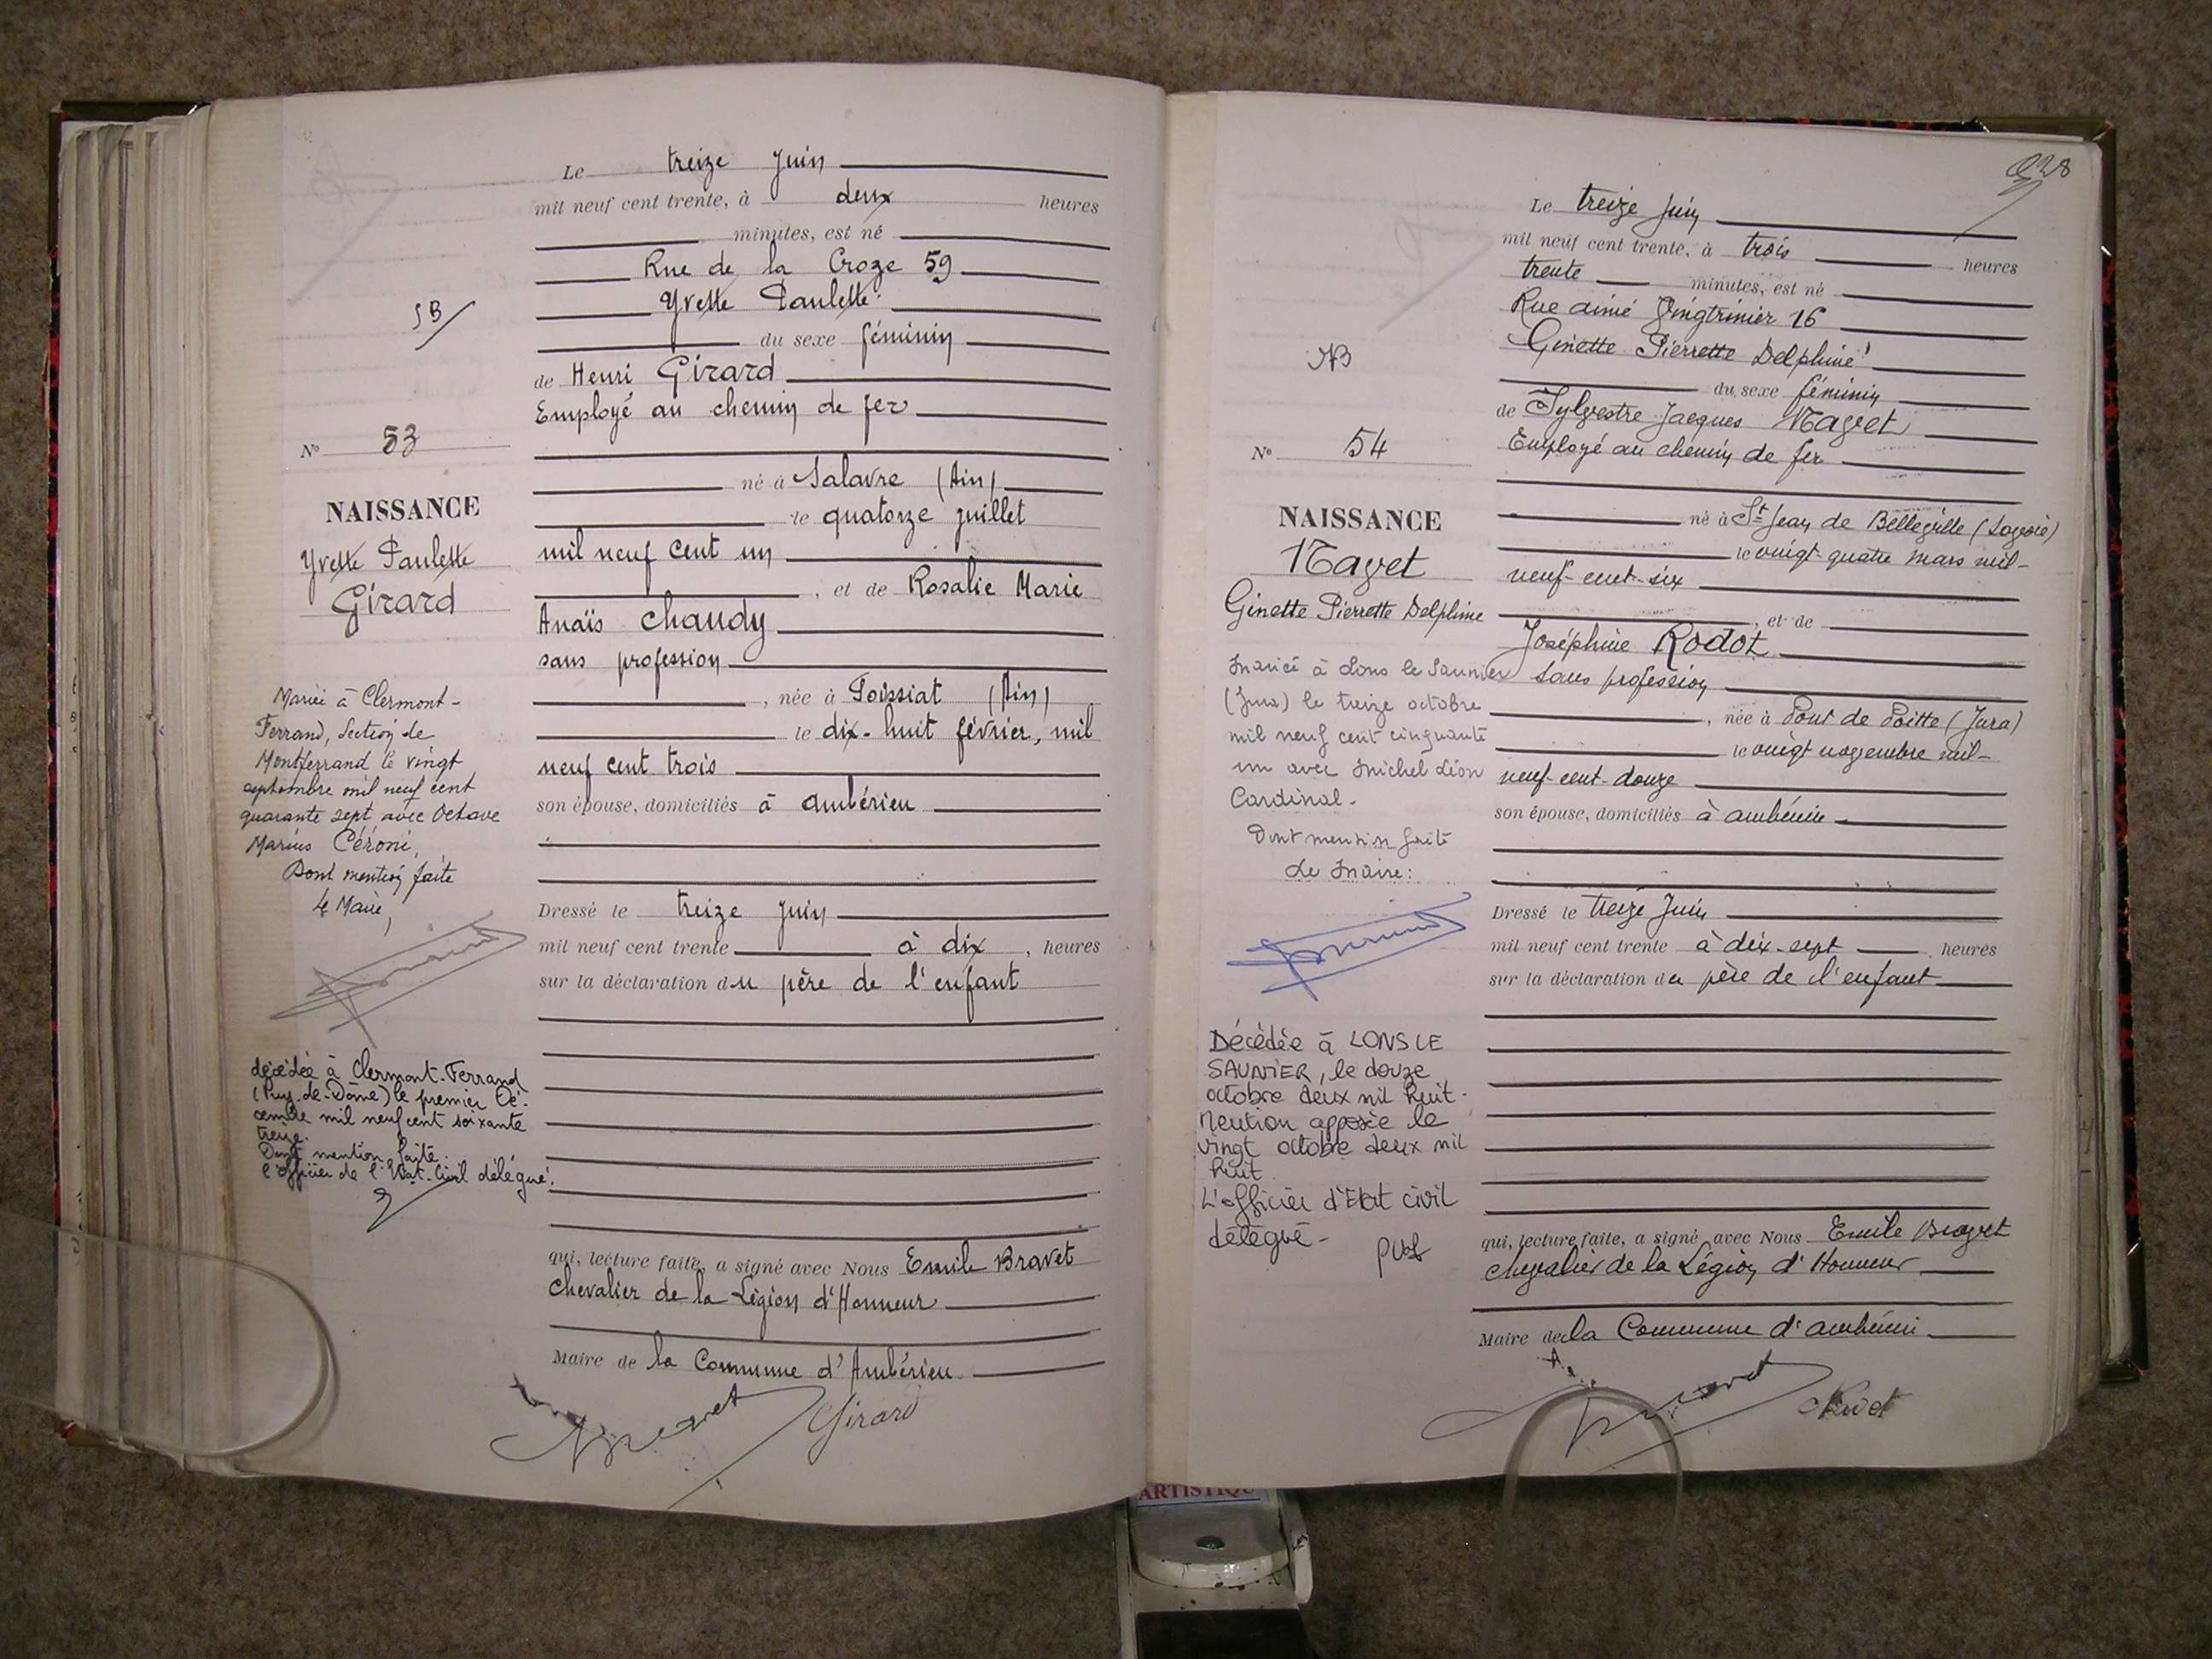 SB
N° 53
NAISSANCE
Yvette Paulette
Girard
Mariée à Clermont-
Ferrand, Section de
Montferrand le vingt
septembre mil neuf cent
quarante sept avec Octave
Marius Céroni,
Dont mention faite
Le Maire,
décédée à Clermont-Ferrand
(Puy-de-Dôme) le premier Dé-
cembre mil neuf cent soixante
treize.
Dont mention faite.
l'officier de l'Etat-Civil délégué.
Le treize Juin
mil neuf cent trente, à deux heures
minutes, est né
Rue de la Croze 59
Yvette Paulette
du sexe féminin
de Henri Girard
Employé au chemin de fer
né à Salavre (Ain)
le quatorze juillet
mil neuf cent un
, et de Rosalie Marie
Anaïs Chaudy
sans profession
, née à Poissiat (Ain)
le dix-huit février, mil
neuf cent trois
son épouse, domiciliés à Ambérieu
Dressé le treize Juin
mil neuf cent trente à dix , heures
sur la déclaration du père de l'enfant
qui, lecture faite, a signé avec Nous Emile Bravet
Chevalier de la Légion d'Honneur
Maire de la Commune d'Ambérieu
Bravet Girard
NB
N° 54
NAISSANCE
Nayet
Ginette Pierrette Delphine
Mariée à Lons le Saunier
(Jura) le treize octobre
mil neuf cent cinquante
un avec Michel Léon
Cardinal.
Dont mention faite
Le Maire:
Décédée à LONS LE
SAUNIER, le douze
octobre deux mil huit.
Mention apposée le
vingt octobre deux mil
huit.
L'officier d'Etat civil
délégué-
Le treize Juin
mil neuf cent trente, à trois heures
trente minutes, est né
Rue aimé Vingtrinier 16
Ginette Pierrette Delphine
du sexe féminin
de Sylvestre Jacques Nayet
Employé au chemin de fer
né à St Jean de Belleville (Savoie)
le vingt-quatre mars mil-
neuf-cent-six
, et de
Joséphine Rodot
sans profession
, née à Pont de Poitte (Jura)
le vingt novembre mil-
neuf-cent-douze
son épouse, domiciliés à ambérieu
Dressé le treize Juin
mil neuf cent trente à dix-sept heures
sur la déclaration du père de l'enfant
qui, lecture faite, a signé avec Nous Emile Bravet
chevalier de la Légion d'Honneur
Maire de la Commune d'ambérieu
Bravet
ARTISTIQU